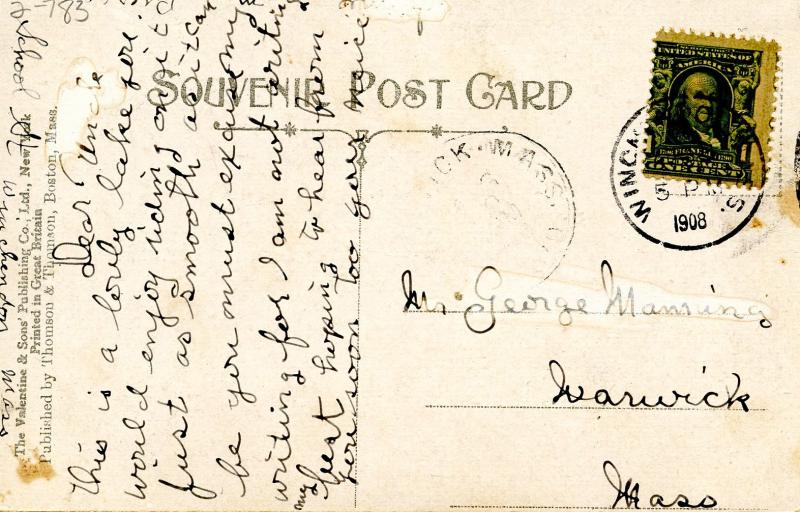 SOUVENIR POST CARD
Dear Uncle
This is a lovely lake you
would enjoy riding on it
just as smooth as it can
be you must excuse my
writing for I am not writing
my best hoping to hear from
you soon too your niece
School St Winchendon Mass
-783
The Valentine & Sons' Publishing Co., Ltd., New York
Printed in Great Britain
Published by Thomson & Thomson, Boston, Mass.
SERIES 1902
UNITED STATES OF
AMERICA
FRANKLIN
ONE CENT
WINC
5 PM
1908
ICK MASS
Mr George Manning
Warwick
Mass